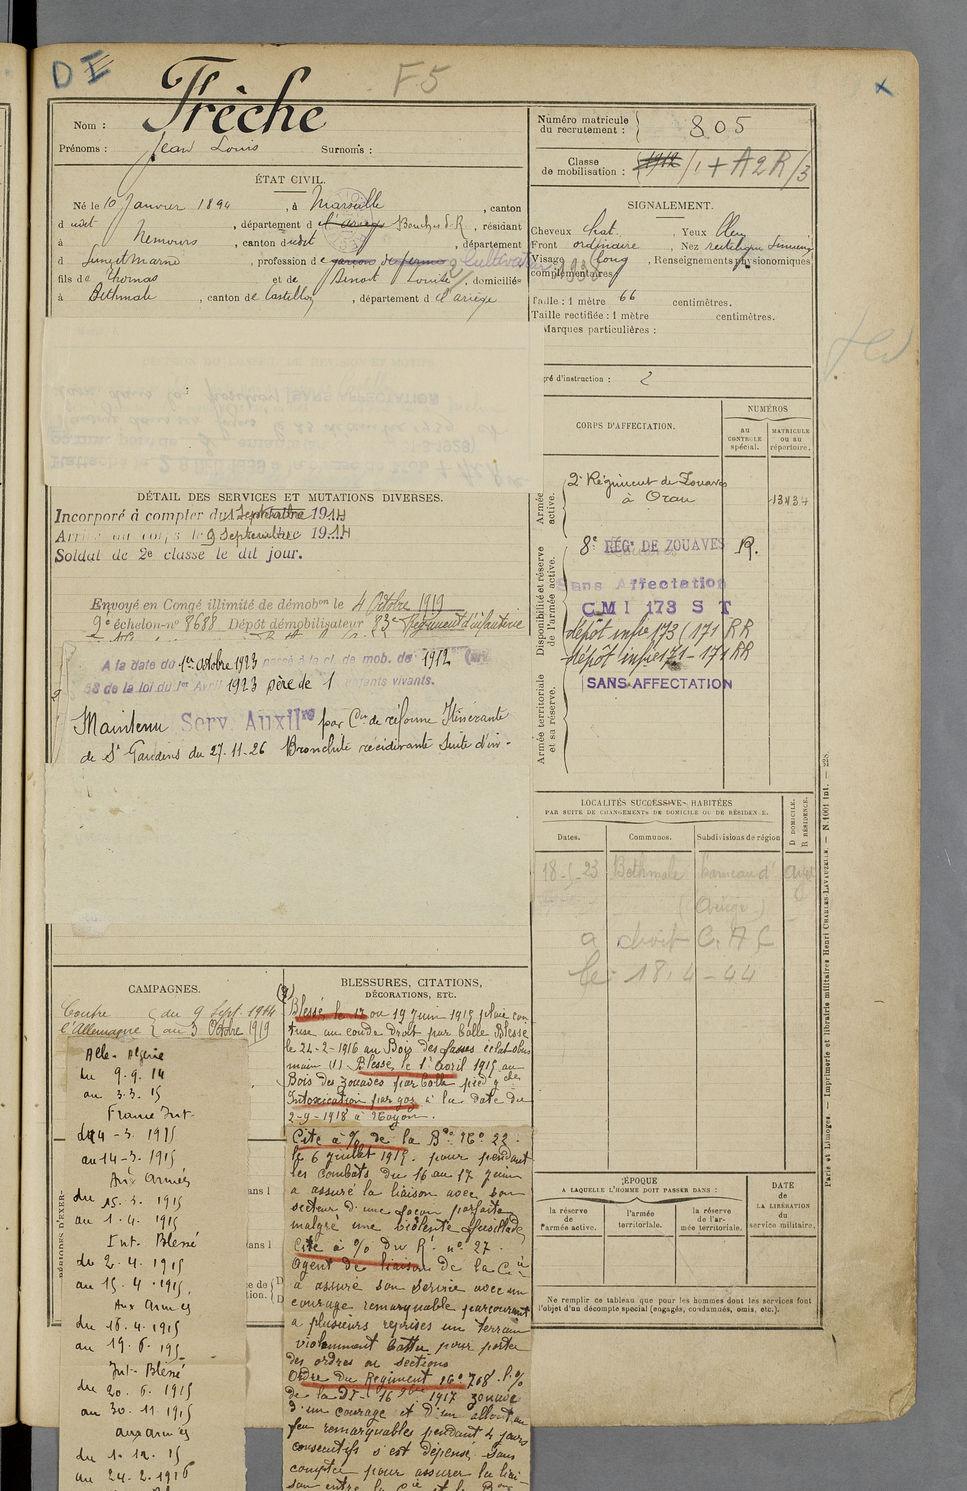 DE
F5
x
Frèche
Nom :
Prénoms : Jean Louis Surnoms :
Numéro matricule du recrutement : 805
Classe de mobilisation : 1912 / 1 + A2R/3
ÉTAT CIVIL.
Né le 10 Janvier 1894, à Marseille, canton
dudit, département de l'ariège Bouches d. R, résidant
à Nemours, canton dudit, département
d Seine et Marne, profession de garçon de ferme Cultivateur
fils de Thomas et de Benast Louise, domiciliés
à Bethmale, canton de Castillon, département d l'ariège
SIGNALEMENT.
Cheveux chat. Yeux bleu
Front ordinaire, Nez rectiligne
Visage long, Renseignements physionomiques
complémentaires
Taille : 1 mètre 66 centimètres.
Taille rectifiée : 1 mètre centimètres.
Marques particulières :
gré d'instruction : 2
CORPS D'AFFECTATION.
NUMÉROS
au CONTROLE spécial.
MATRICULE ou au répertoire.
Armée active.
2e Régiment de Zouaves
à Oran
13434
Disponibilité et réserve de l'armée active.
8e RÉGt DE ZOUAVES R.
Sans Affectation
CMI 173 S T
dépôt infie 173 (171 RR
dépôt infie 171 - 171 RR
Armée territoriale et sa réserve.
SANS AFFECTATION
DÉTAIL DES SERVICES ET MUTATIONS DIVERSES.
Incorporé à compter du 1 Septembre 1914
Arrivé au corps le 9 Septembre 1914
Soldat de 2e classe le dit jour.
Envoyé en Congé illimité de démobon le 4 Octobre 1919
2e échelon-no 8688 Dépôt démobilisateur 83e Régiment d'infanterie
A la date du 1er octobre 1923 passé à la cl. de mob. de 1912 (art
58 de la loi du 1er Avril 1923 père de 1 enfants vivants.
Maintenu Serv Auxilre par Con de réforme Itinérante
de St Gaudens du 27-11-26 Bronchite récidivante Suite d'in-
LOCALITÉS SUCCESSIVES HABITÉES
PAR SUITE DE CHANGEMENTS DE DOMICILE OU DE RÉSIDENCE.
Dates. Communes. Subdivisions de région
D DOMICILE. R RÉSIDENCE.
18-5-23 Bethmale hameau d'
(Ariège)
a droit C. A C
le 18-4-44
CAMPAGNES.
Contre l'Allemagne
du 9 Sept. 1914
au 3 Octobre 1919
Alle- Algérie
du 9.9.14
au 3.3.15
France Int-
du 4-3.1915
au 14-3.1915
Aux Armées
du 15.3.1915
au 1.4.1915
Int- Blessé
du 2.4.1915
au 15.4.1915.
Aux Armées
du 16.4.1915
au 19.6.195
Int- Blessé
du 20.6.1915
au 30.11.1915
aux armées
du 1.12.15
au 24.2.1916
BLESSURES, CITATIONS,
DÉCORATIONS, ETC.
Blessé le 17 ou 19 Juin 1915 plaie con
tuse au coude droit par balle Blessé
le 24-2-1916 au Bois des fosses éclat obus
main (1) Blessé le 1er avril 1915 au
Bois des zouaves par balle pied g che
Intoxication par gaz à la date du
2-9-1918 à Noyon.
Cité à % de la Bde No 22.
le 6 juillet 1915. pour pendant
les combats du 16 au 17 Juin
a assuré la liaison avec son
secteur d'une façon parfaite
malgré une violente fusillade
Cité à % du Rt no 27.
Agent de liaison de la Cie
a assuré son service avec un
courage remarquable parcourant
a plusieurs reprises un terrain
violemment battu pour porter
des ordres au sections
Ordre du Régiment No 708
1917 zouave
d'un courage et d'un allant au
feu remarquables pendant 4 jours
consecutifs s'est dépensé sans
compter pour assurer la liai-
son entre la Cie et le Bon
ÉPOQUE
A LAQUELLE L'HOMME DOIT PASSER DANS :
la réserve de l'armée active.
l'armée territoriale.
la réserve de l'armée territoriale.
DATE DE LA LIBÉRATION du service militaire.
Ne remplir ce tableau que pour les hommes dont les services font
l'objet d'un décompte spécial (engagés, condamnés, omis, etc.).
Paris et Limoges. — Imprimerie et librairie militaires Henri CHARLES-LAVAUZELLE. — N. 1001 int. — 228.